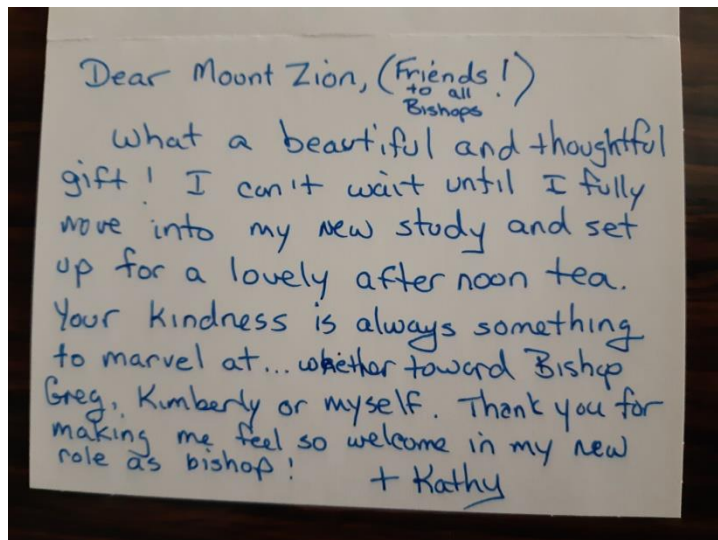 Dear Mount Zion, (Friends!)
to all
Bishops
What a beautiful and thoughtful
gift! I can't wait until I fully
move into my new study and set
up for a lovely afternoon tea.
Your kindness is always something
to marvel at... whether toward Bishop
Greg, Kimberly or myself. Thank you for
making me feel so welcome in my new
role as bishop!
+ Kathy